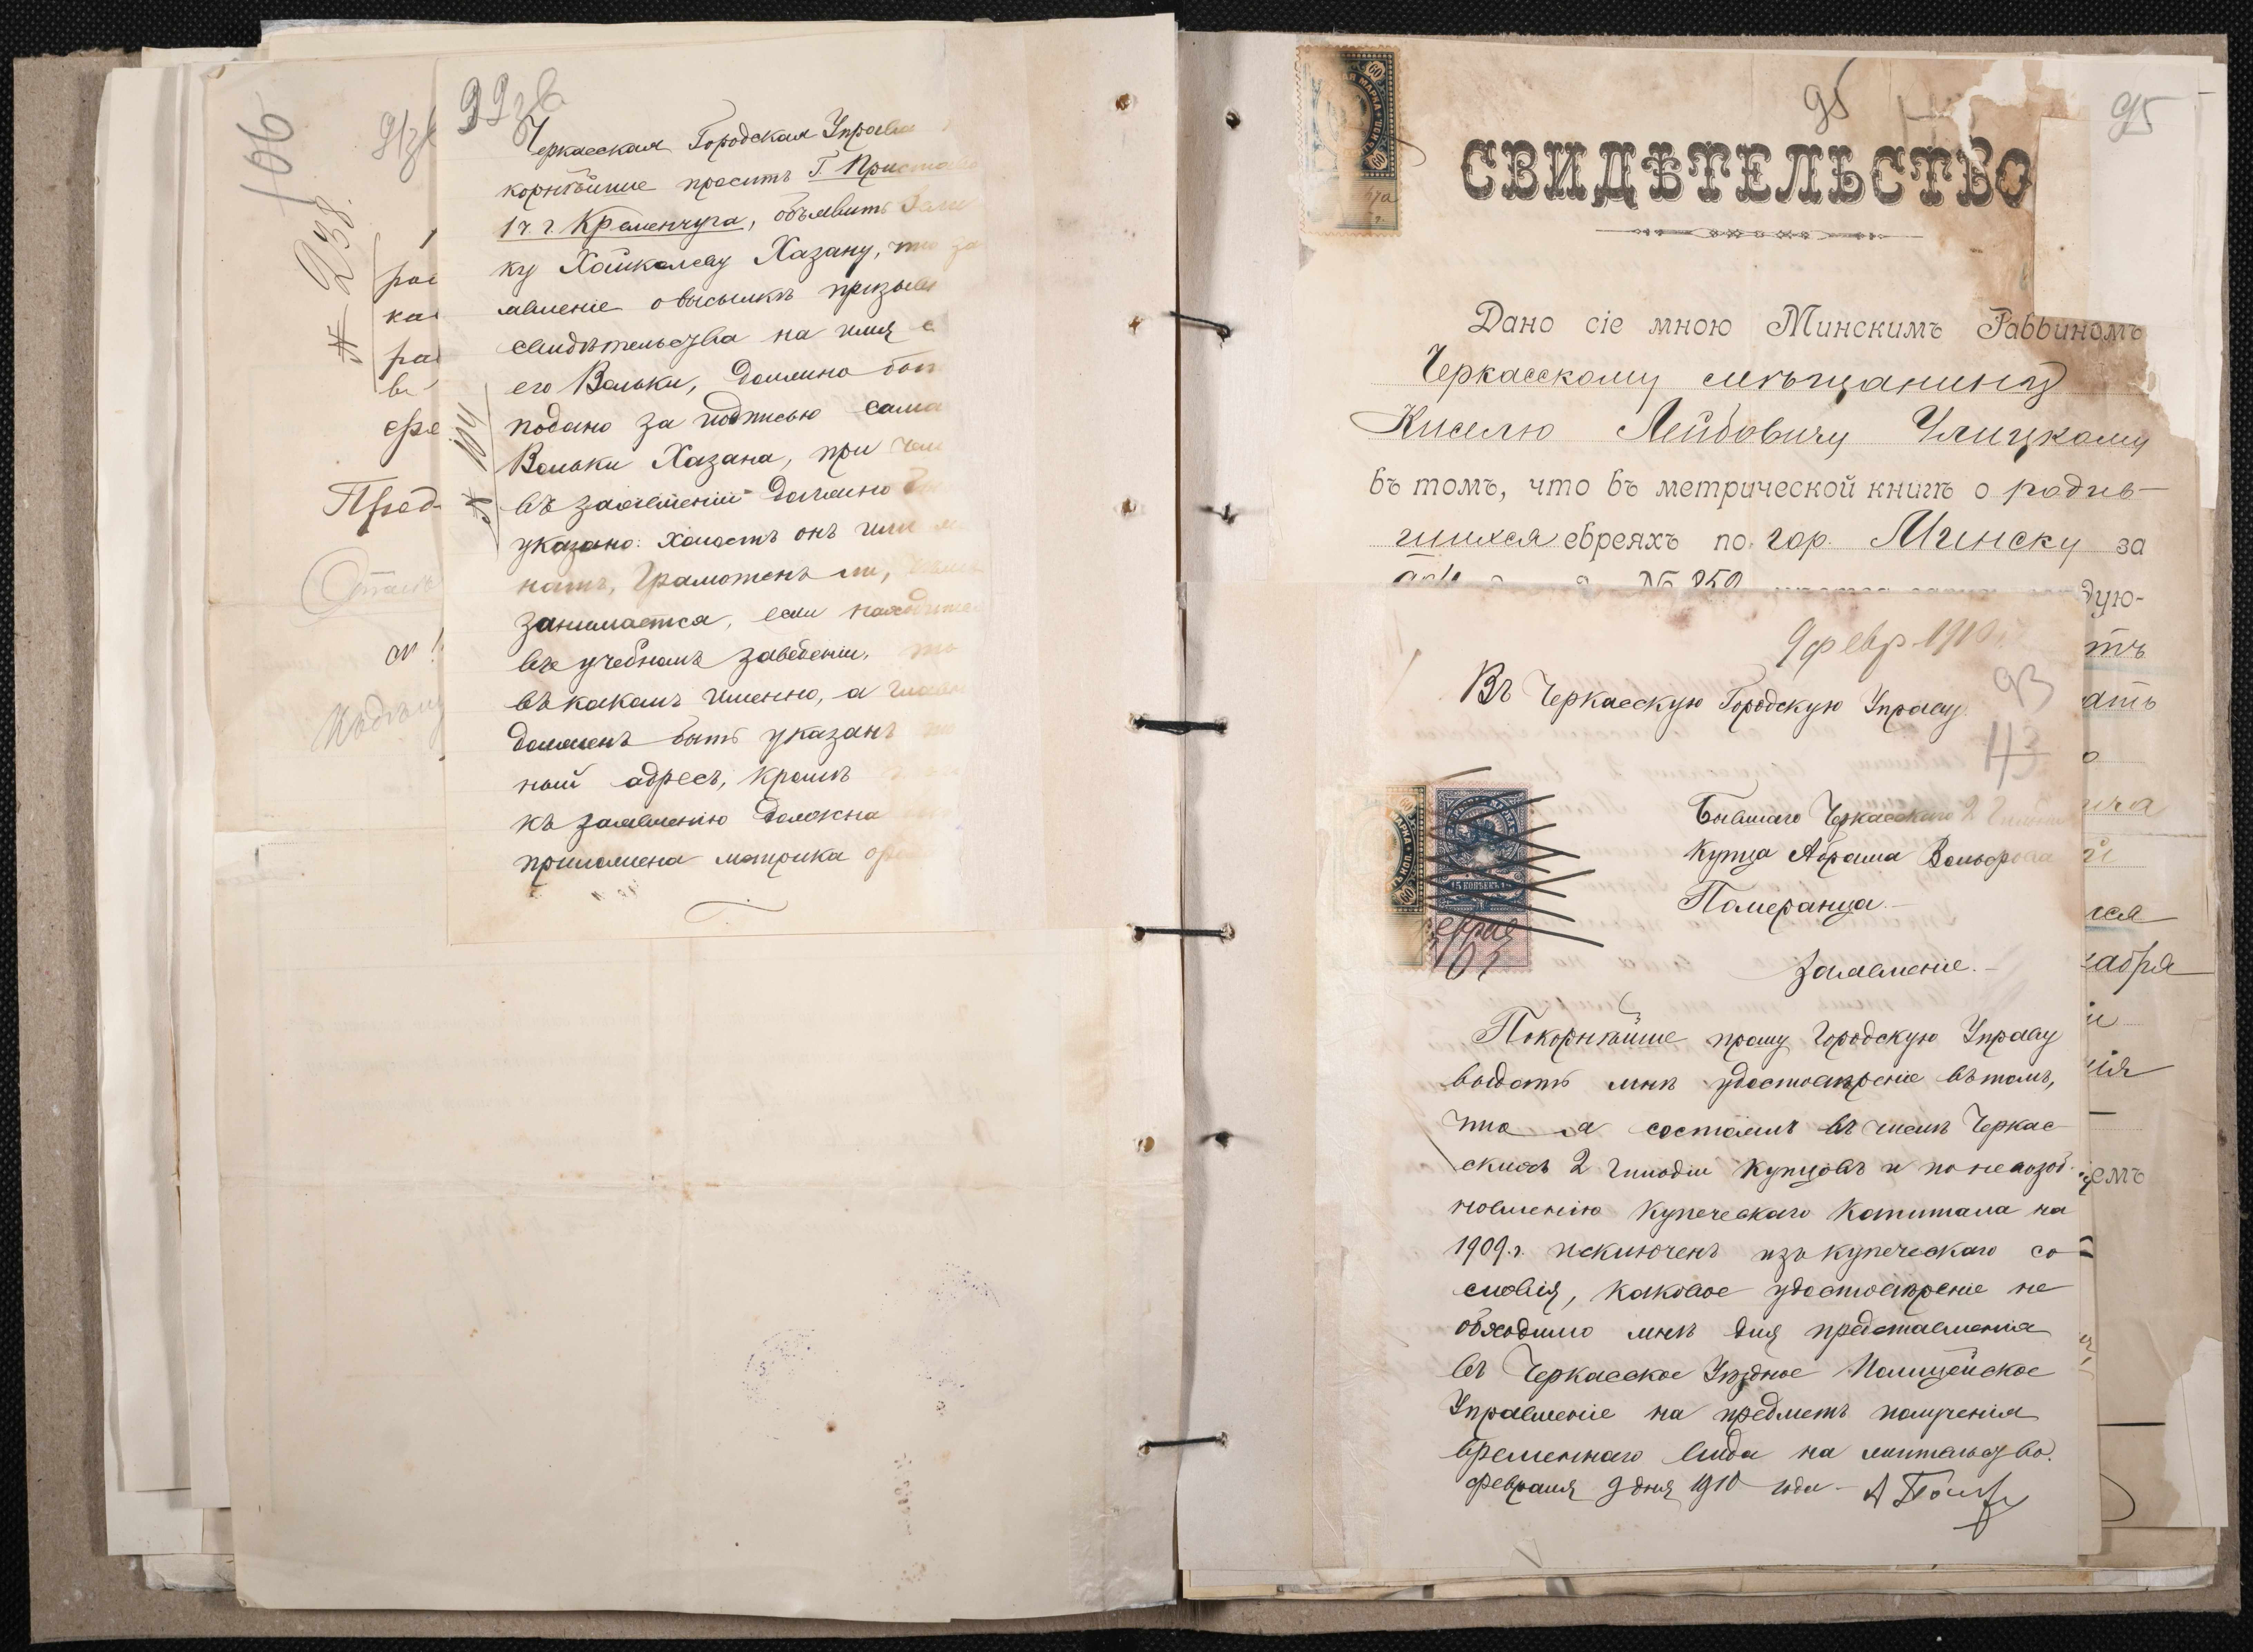 106
№ 238.
91 об
рас
каз
раз
въ
Пред
92 об
Черкасская Городская Управа
корнѣйше проситъ Г. Пристава
1 ч. г. Кременчуга, объявить
ку Хайкелеву Хазану, что за
явленіе о высылкѣ призыв
свидѣтельства на имя с
его Вольки, должно быт
подано за подписью сама
Вольки Хазана, при чем
въ заявленіи должно
указано: холостъ онъ или
натъ, грамотенъ ли, чѣмъ
занимается, если находится
въ учебномъ заведеніи, то
въ какомъ именно, а главн
долженъ быть указанъ
ный адресъ, кромѣ
къ заявленію должна
приложена метрика
№ 104
95
95
СВИДѢТЕЛЬСТВО
Дано сіе мною Минскимъ Раввиномъ
Черкасскому мѣщанину
Киселю Лейбовичу Улицкому
въ томъ, что въ метрической книгѣ о родив-
шихся евреяхъ по гор. Минску за
№ 850
дую-
тъ
ать
о
ича
й
лся
кабря
и
нія
емъ
9 февр 1910 г.
93
113
Въ Черкасскую Городскую Управу.
Бывшаго Черкасскаго 2 Гильдіи
Купца Абрама Вольфова
Померанца.
60 КОП.
МАРКА
15 КОПѢЕКЪ 15
февраля
910 г
Заявленіе.
Покорнѣйше прошу Городскую Управу
выдать мнѣ удостовѣреніе въ томъ,
что я состоялъ въ числѣ Черкас
скихъ 2 гильдіи купцовъ и по невозоб-
новленію купеческаго капитала на
1909 г. исключенъ изъ купеческаго со
словія, каковое удостовѣреніе не
обходимо мнѣ для представленія
въ Черкасское Уѣздное Полицейское
Управленіе на предметъ полученія
временнаго вида на жительство.
Февраля 9 дня 1910 года